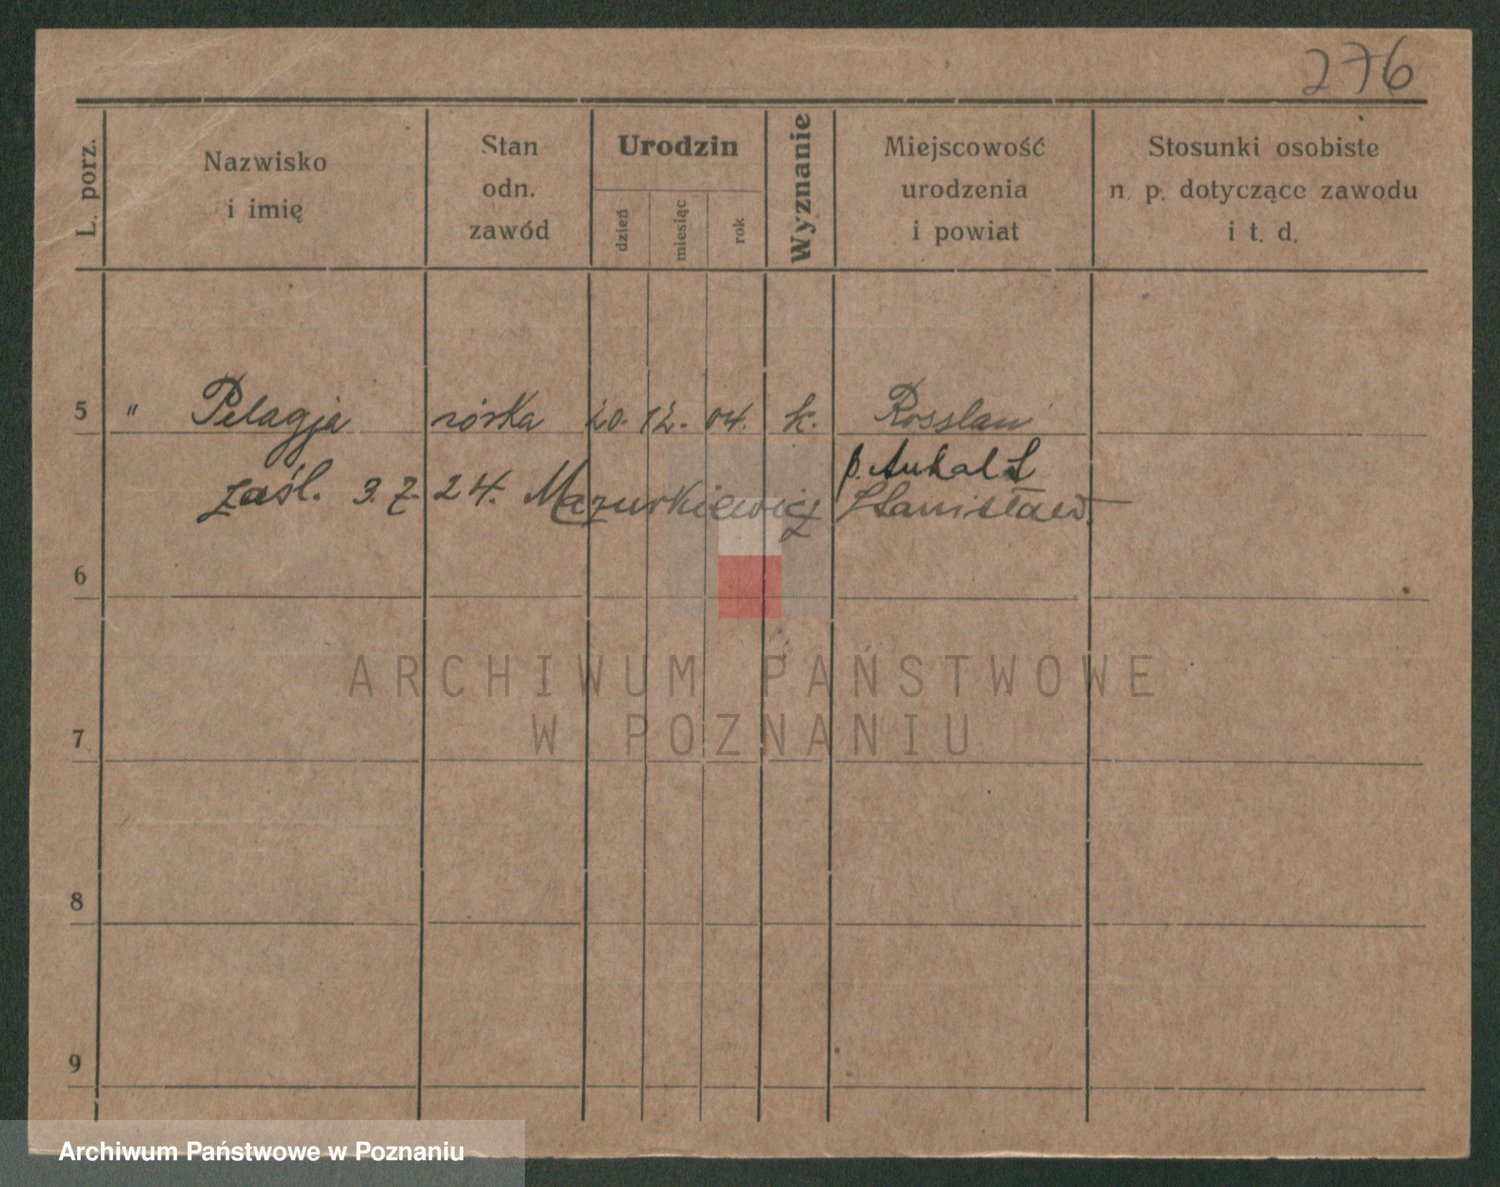 276
L. porz.
Nazwisko
i imię
Stan
odn.
zawód
Urodzin
dzień
miesiąc
rok
Wyznanie
Miejscowość
urodzenia
i powiat
Stosunki osobiste
n. p. dotyczące zawodu
i t. d.
5 " Pelagja córka 20. 12. 04. k. Rosslau
p. Anhalt
zaśl. 3. 7. 24. Mazurkiewicz Stanisław.
6
ARCHIWUM PAŃSTWOWE
W POZNANIU
7
8
9
Archiwum Państwowe w Poznaniu